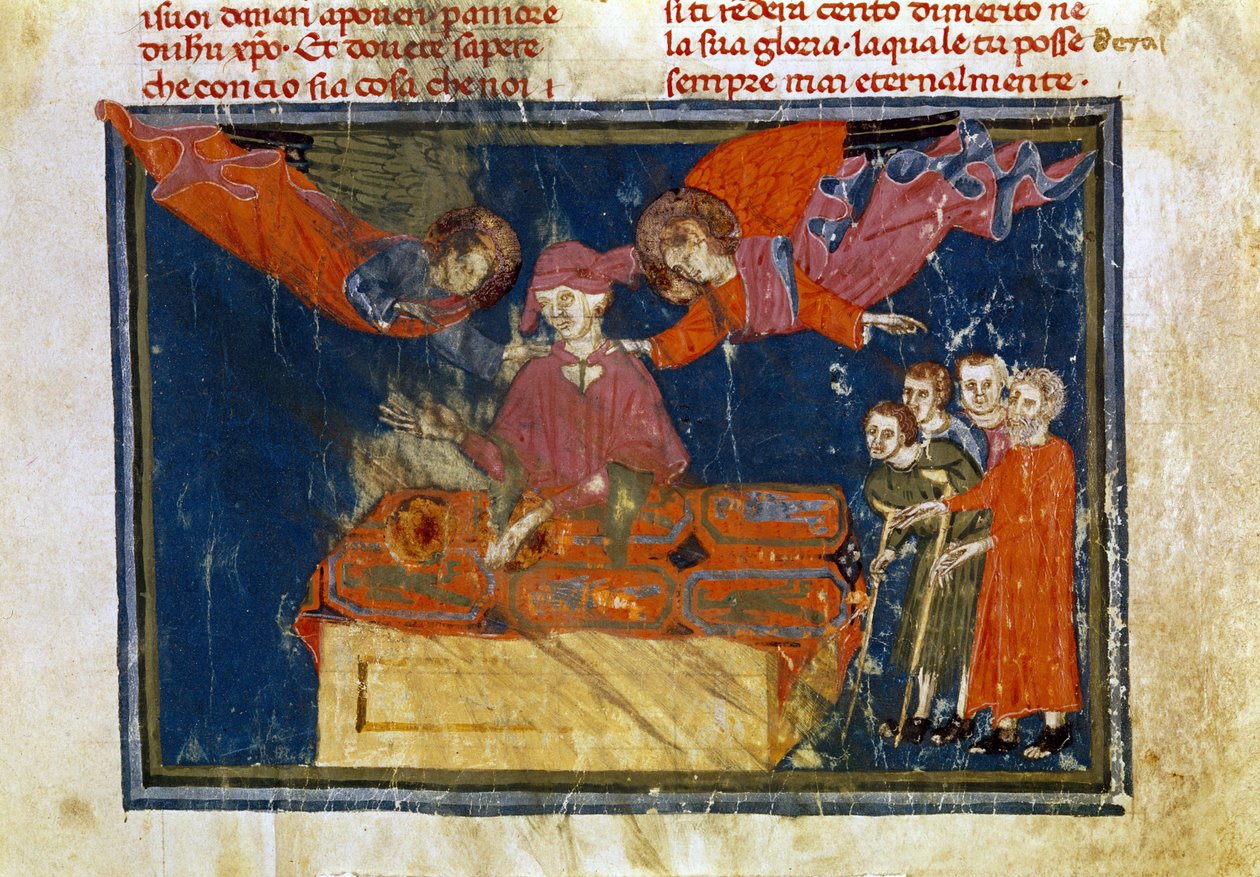 i suoi danari apoveri · p amore
di ihu xpo · Et dovete sapere
che concio sia cosa che noi i
si ti rēdera cento di merito ne
la sua gloria · laquale tu posse
sempre mai eternalmente ·